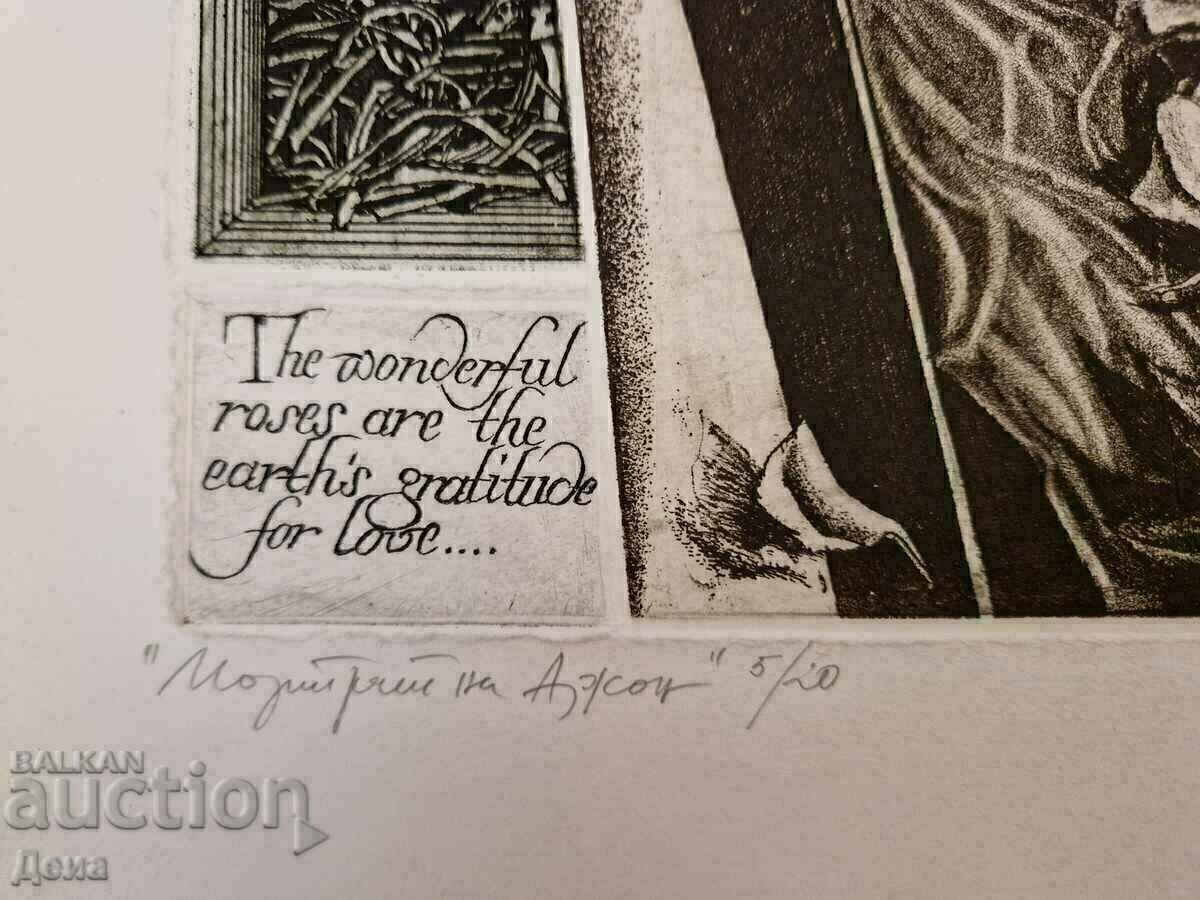 The wonderful
roses are the
earth's gratitude
for love....
"Портрет на Джон" 5/20
BALKAN
auction
Деиа